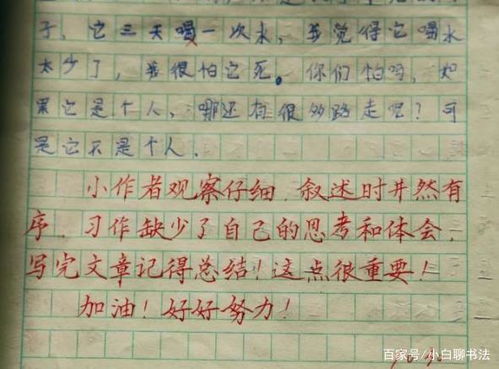 子，它三天喝一次水，我觉得它喝水
太少了，我很怕它死。你们怕吗，如
果它是个人，哪还有很多路走呢？可
是它不是个人．
小作者观察仔细．叙述时井然有
序．习作缺少了自己的思考和体会．
写完文章记得总结！这点很重要！
加油！好好努力！
百家号/小白聊书法